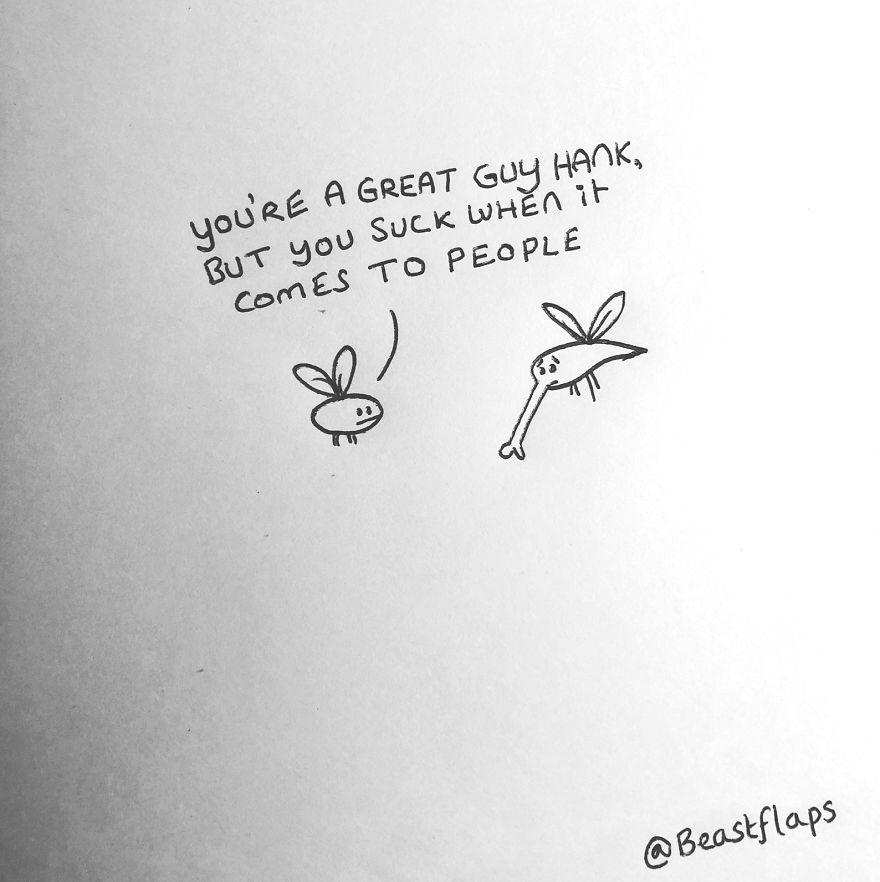 YOU'RE A GREAT GUY HANK,
BUT YOU SUCK WHEN IT
COMES TO PEOPLE
@Beastflaps